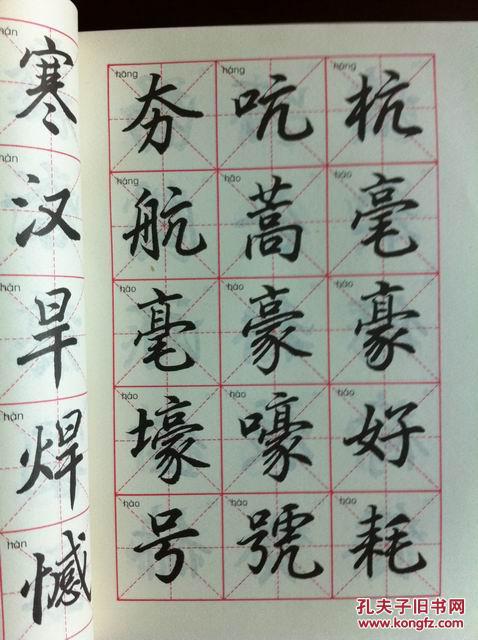 hán
寒
hàn
汉
hàn
旱
hàn
焊
hàn
憾
hāng háng háng
夯 吭 杭
háng hāo háo
航 蒿 毫
háo háo háo
毫 豪 豪
háo háo hǎo
壕 嚎 好
hào hào hào
号 號 耗
孔夫子旧书网
www.kongfz.com